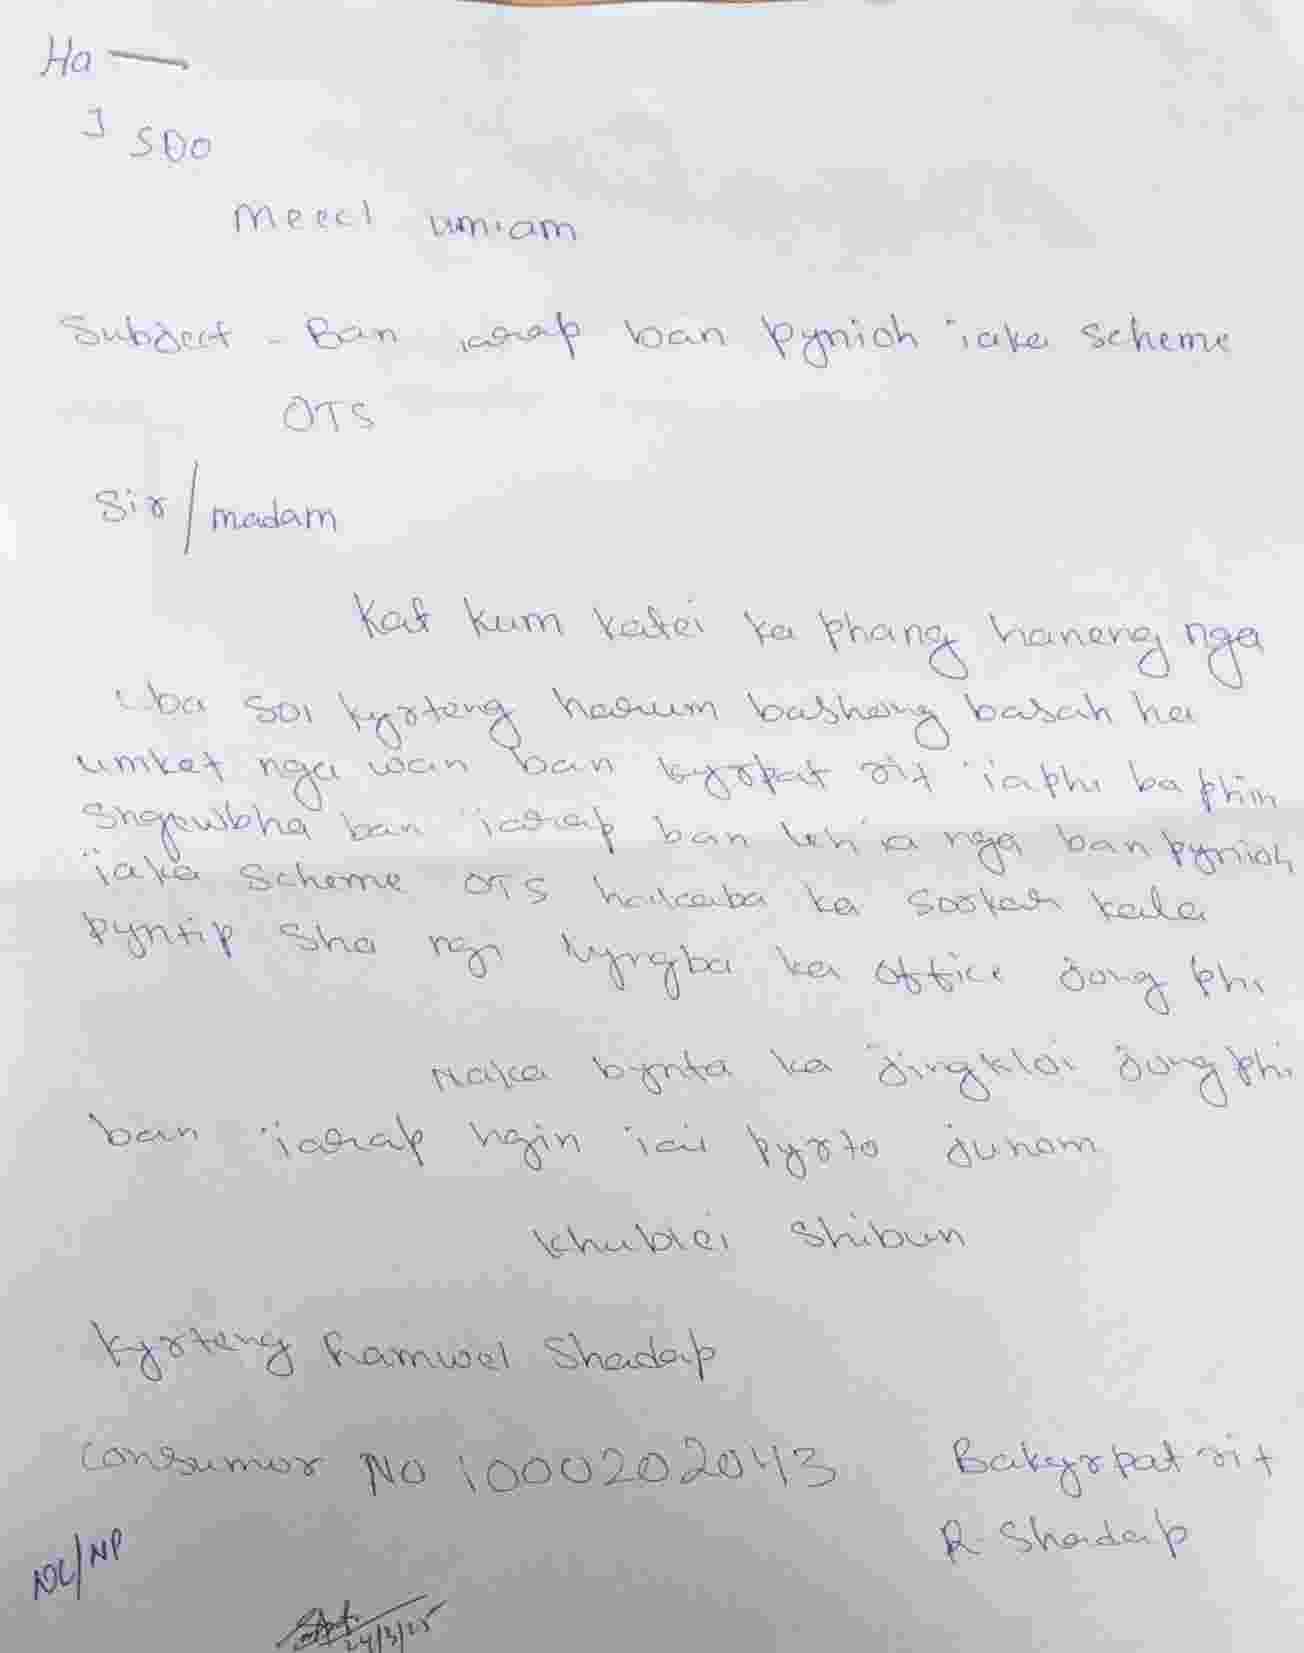 Ha —
I SDO
Meecl umiam
Subject - Ban iarap ban pynioh iaka scheme
OTS
Sir / madam
Kat kum katei ka phang haneng nga
uba soi kyrteng harum bashong basah ha
umket nga wan ban kyrpat rit ïaphi ba phin
Sngewbha ban ïarap ban leh ia nga ban pynioh
ïaka Scheme OTS hakaba ka sorkar kala
pyntip sha ngi lyngba ka office jong phi
Naka bynta ka jingkloi jong phi
ban ïarap ngin iai pyrto junom
Khublei Shibun
Kyrteng Ramwel Shadap
Consumer No 1000202043
Bakyrpat rit
R. Shadap
NL/NP
24/3/25